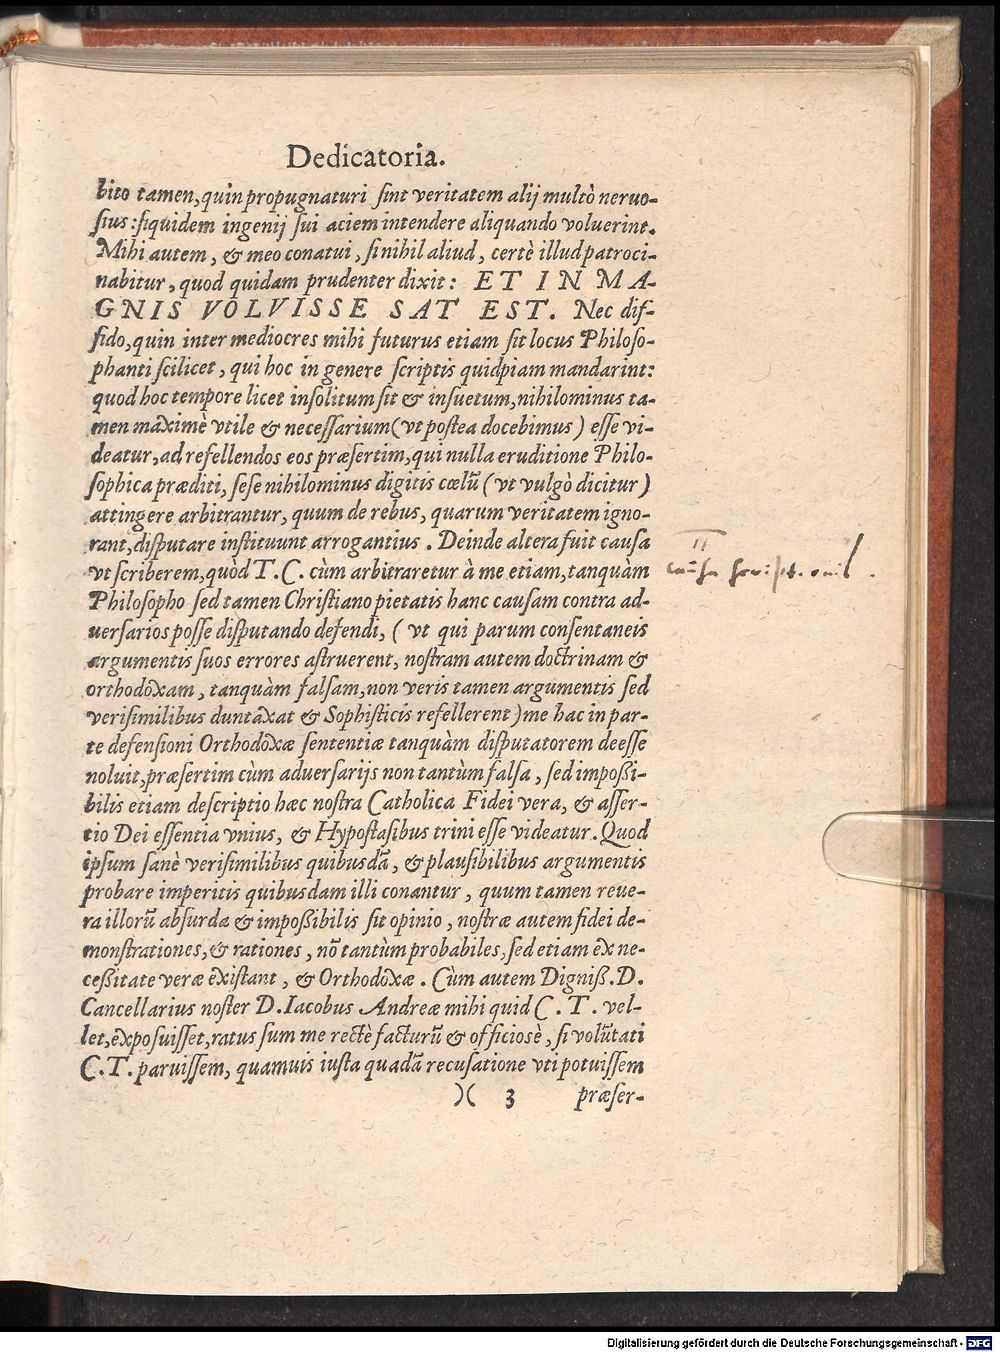 Dedicatoria.
bito tamen, quin propugnaturi ſint veritatem alij multò neruo-
ſius: ſiquidem ingenij ſui aciem intendere aliquando voluerint.
Mihi autem, & meo conatui, ſi nihil aliud, certè illud patroci-
nabitur, quod quidam prudenter dixit: ET IN MA-
GNIS VOLVISSE SAT EST. Nec dif-
fido, quin inter mediocres mihi futurus etiam ſit locus Philoſo-
phanti ſcilicet, qui hoc in genere ſcriptis quidpiam mandarint:
quod hoc tempore licet inſolitum ſit & inſuetum, nihilominus ta-
men maximè vtile & neceſſarium (vt poſtea docebimus) eſſe vi-
deatur, ad refellendos eos præſertim, qui nulla eruditione Philo-
ſophica præditi, ſeſe nihilominus digitis cœlũ (vt vulgò dicitur)
attingere arbitrantur, quum de rebus, quarum veritatem igno-
rant, diſputare inſtituunt arrogantius. Deinde altera fuit cauſa
vt ſcriberem, quòd T. C. cùm arbitraretur à me etiam, tanquàm
Philoſopho ſed tamen Chriſtiano pietatis hanc cauſam contra ad-
uerſarios poſſe diſputando defendi, (vt qui parum conſentaneis
argumentis ſuos errores aſtruerent, noſtram autem doctrinam &
orthodoxam, tanquàm falſam, non veris tamen argumentis ſed
veriſimilibus duntaxat & Sophiſticis refellerent) me hac in par-
te defenſioni Orthodoxæ ſententiæ tanquàm diſputatorem deeſſe
noluit, præſertim cùm aduerſarijs non tantùm falſa, ſed impoßi-
bilis etiam deſcriptio hæc noſtra Catholica Fidei vera, & aſſer-
tio Dei eſſentia vnius, & Hypoſtaſibus trini eſſe videatur. Quod
ipſum ſanè veriſimilibus quibuſdã, & plauſibilibus argumentis
probare imperitis quibusdam illi conantur, quum tamen reue-
ra illorũ abſurda & impoßibilis ſit opinio, noſtræ autem fidei de-
monſtrationes, & rationes, nõ tantùm probabiles, ſed etiam ex ne-
ceßitate veræ exiſtant, & Orthodoxæ. Cùm autem Digniß. D.
Cancellarius noſter D. Iacobus Andreæ mihi quid C. T. vel-
let, expoſuiſſet, ratus ſum me rectè facturũ & officiosè, ſi volũtati
C. T. paruiſſem, quamuis iuſta quadã recuſatione vti potuiſſem
)( 3 præſer-
II